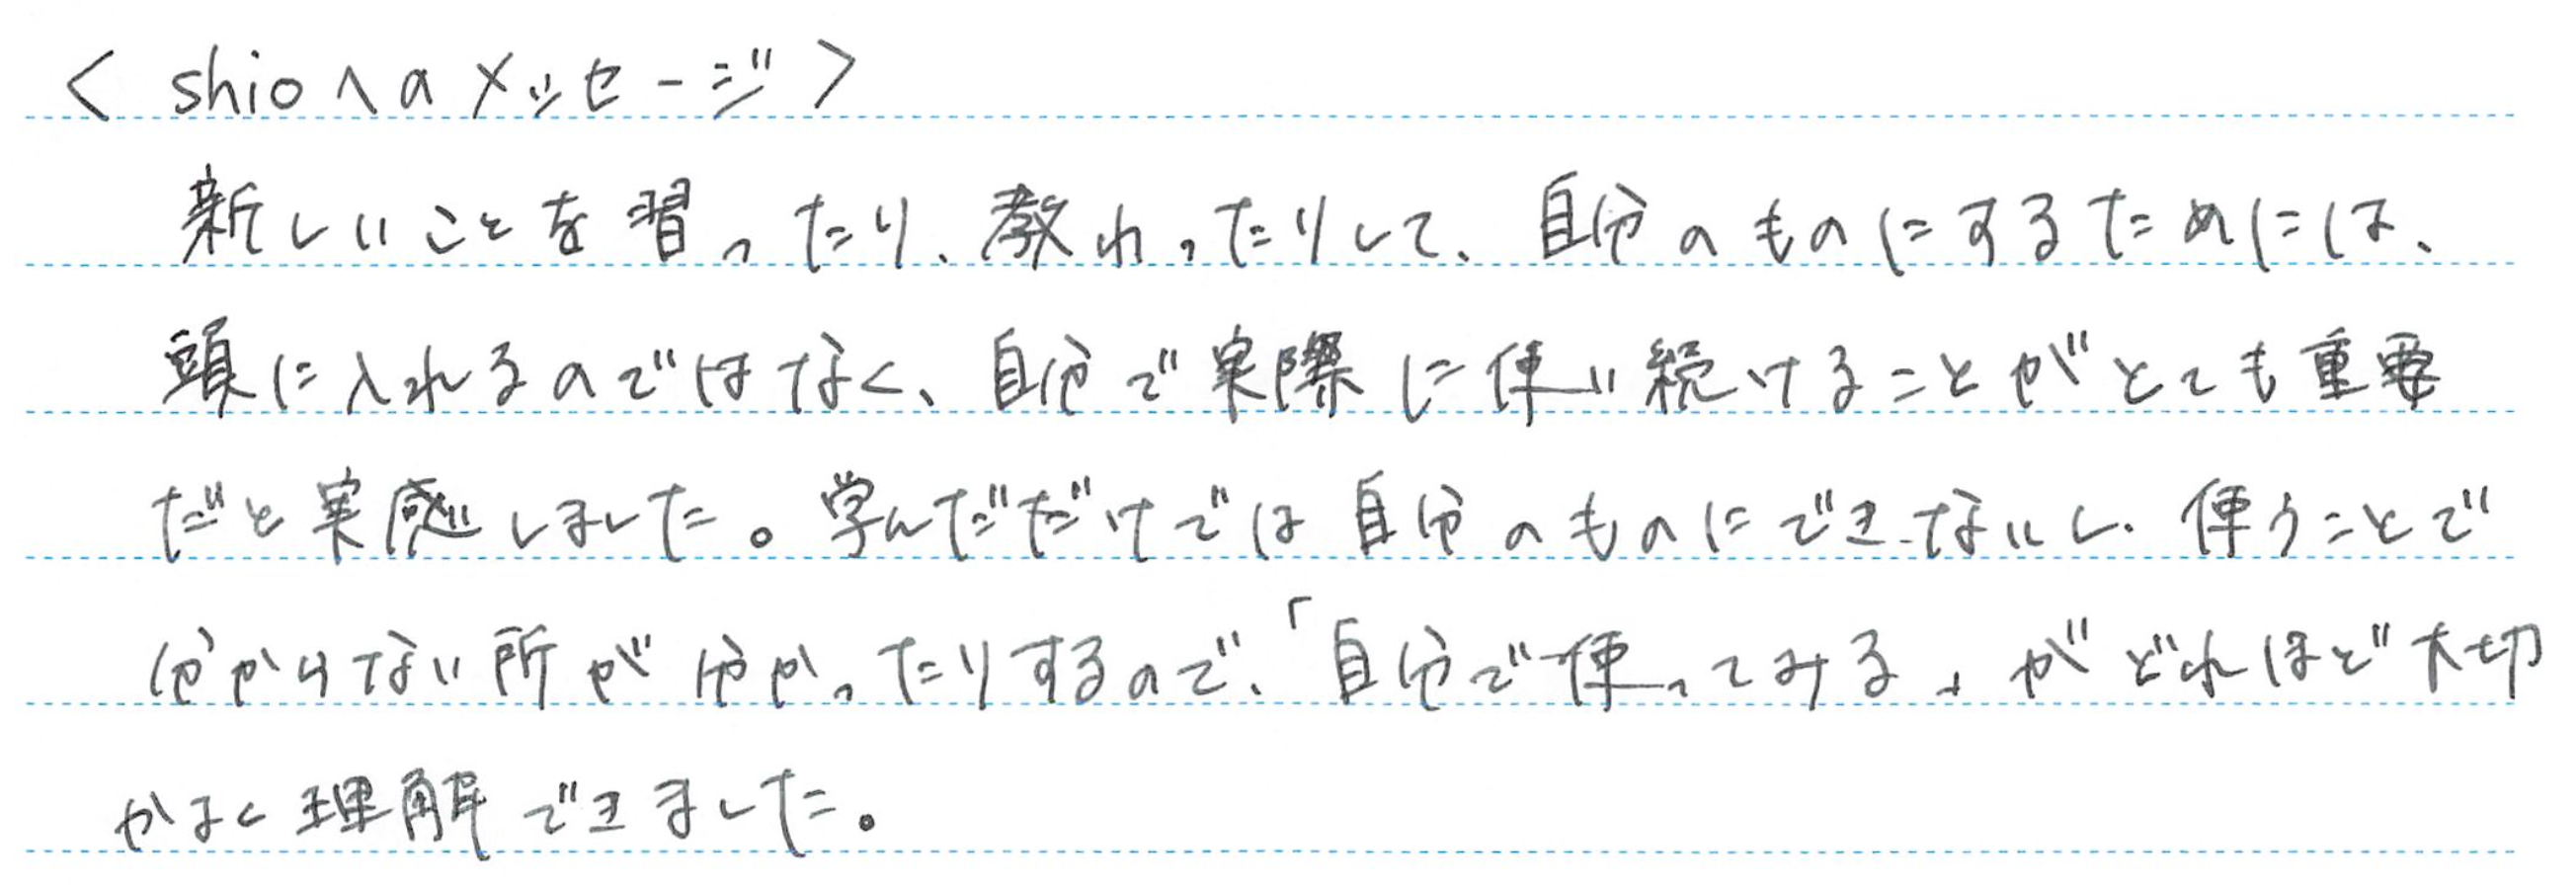 < shioへのメッセージ >
新しいことを習ったり、教わったりして、自分のものにするためには、
頭に入れるのではなく、自分で実際に使い続けることがとても重要
だと実感しました。学んだだけでは自分のものにできないし、使うことで
分からない所が分かったりするので、「自分で使ってみる」がどれほど大切
かよく理解できました。